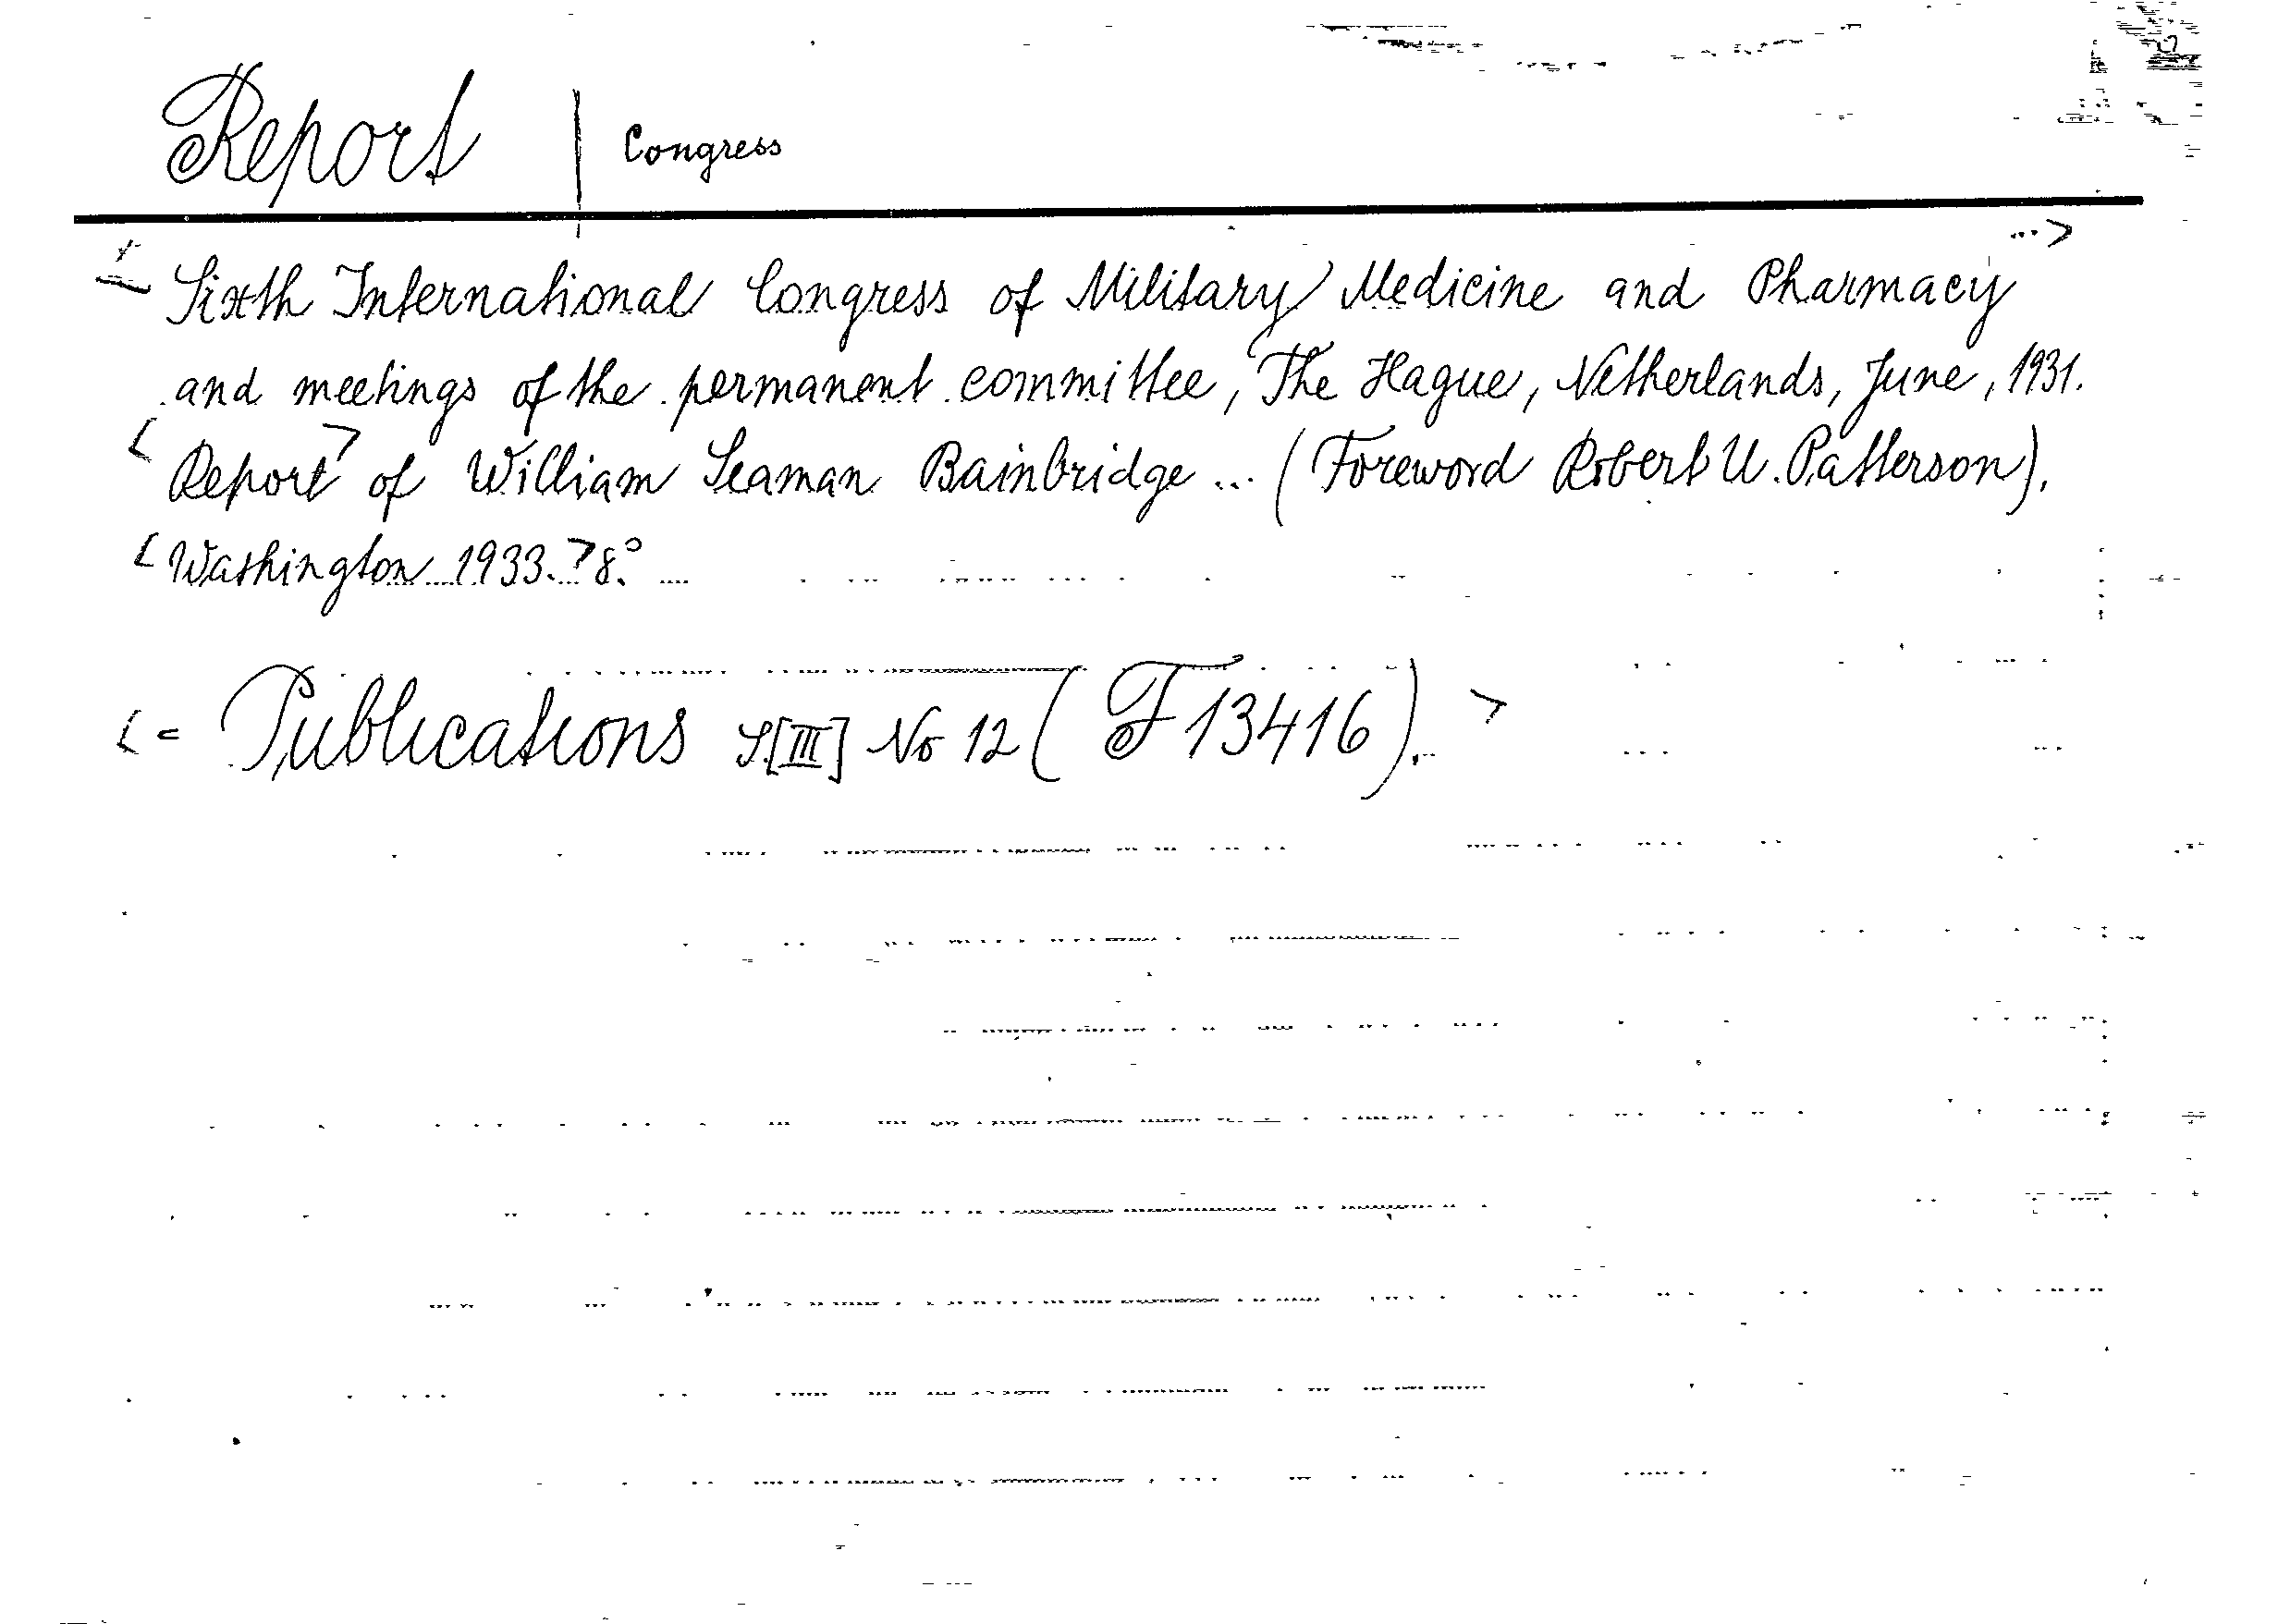 Report | Congress
...>
< Sixth International Congress of Military Medicine and Pharmacy
and meetings of the permanent committee, The Hague, Netherlands, June, 1931.
<Report> of William Seaman Bainbridge ... (Foreword Robert U. Patterson).
<Washington 1933.> 8.°
<= Publications S.[III] No 12 (F 13416).>